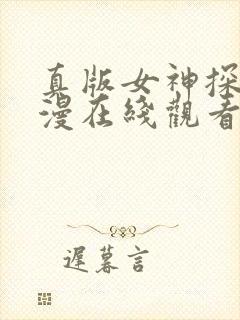 真版女神探
漫在綫觀看
遲暮言